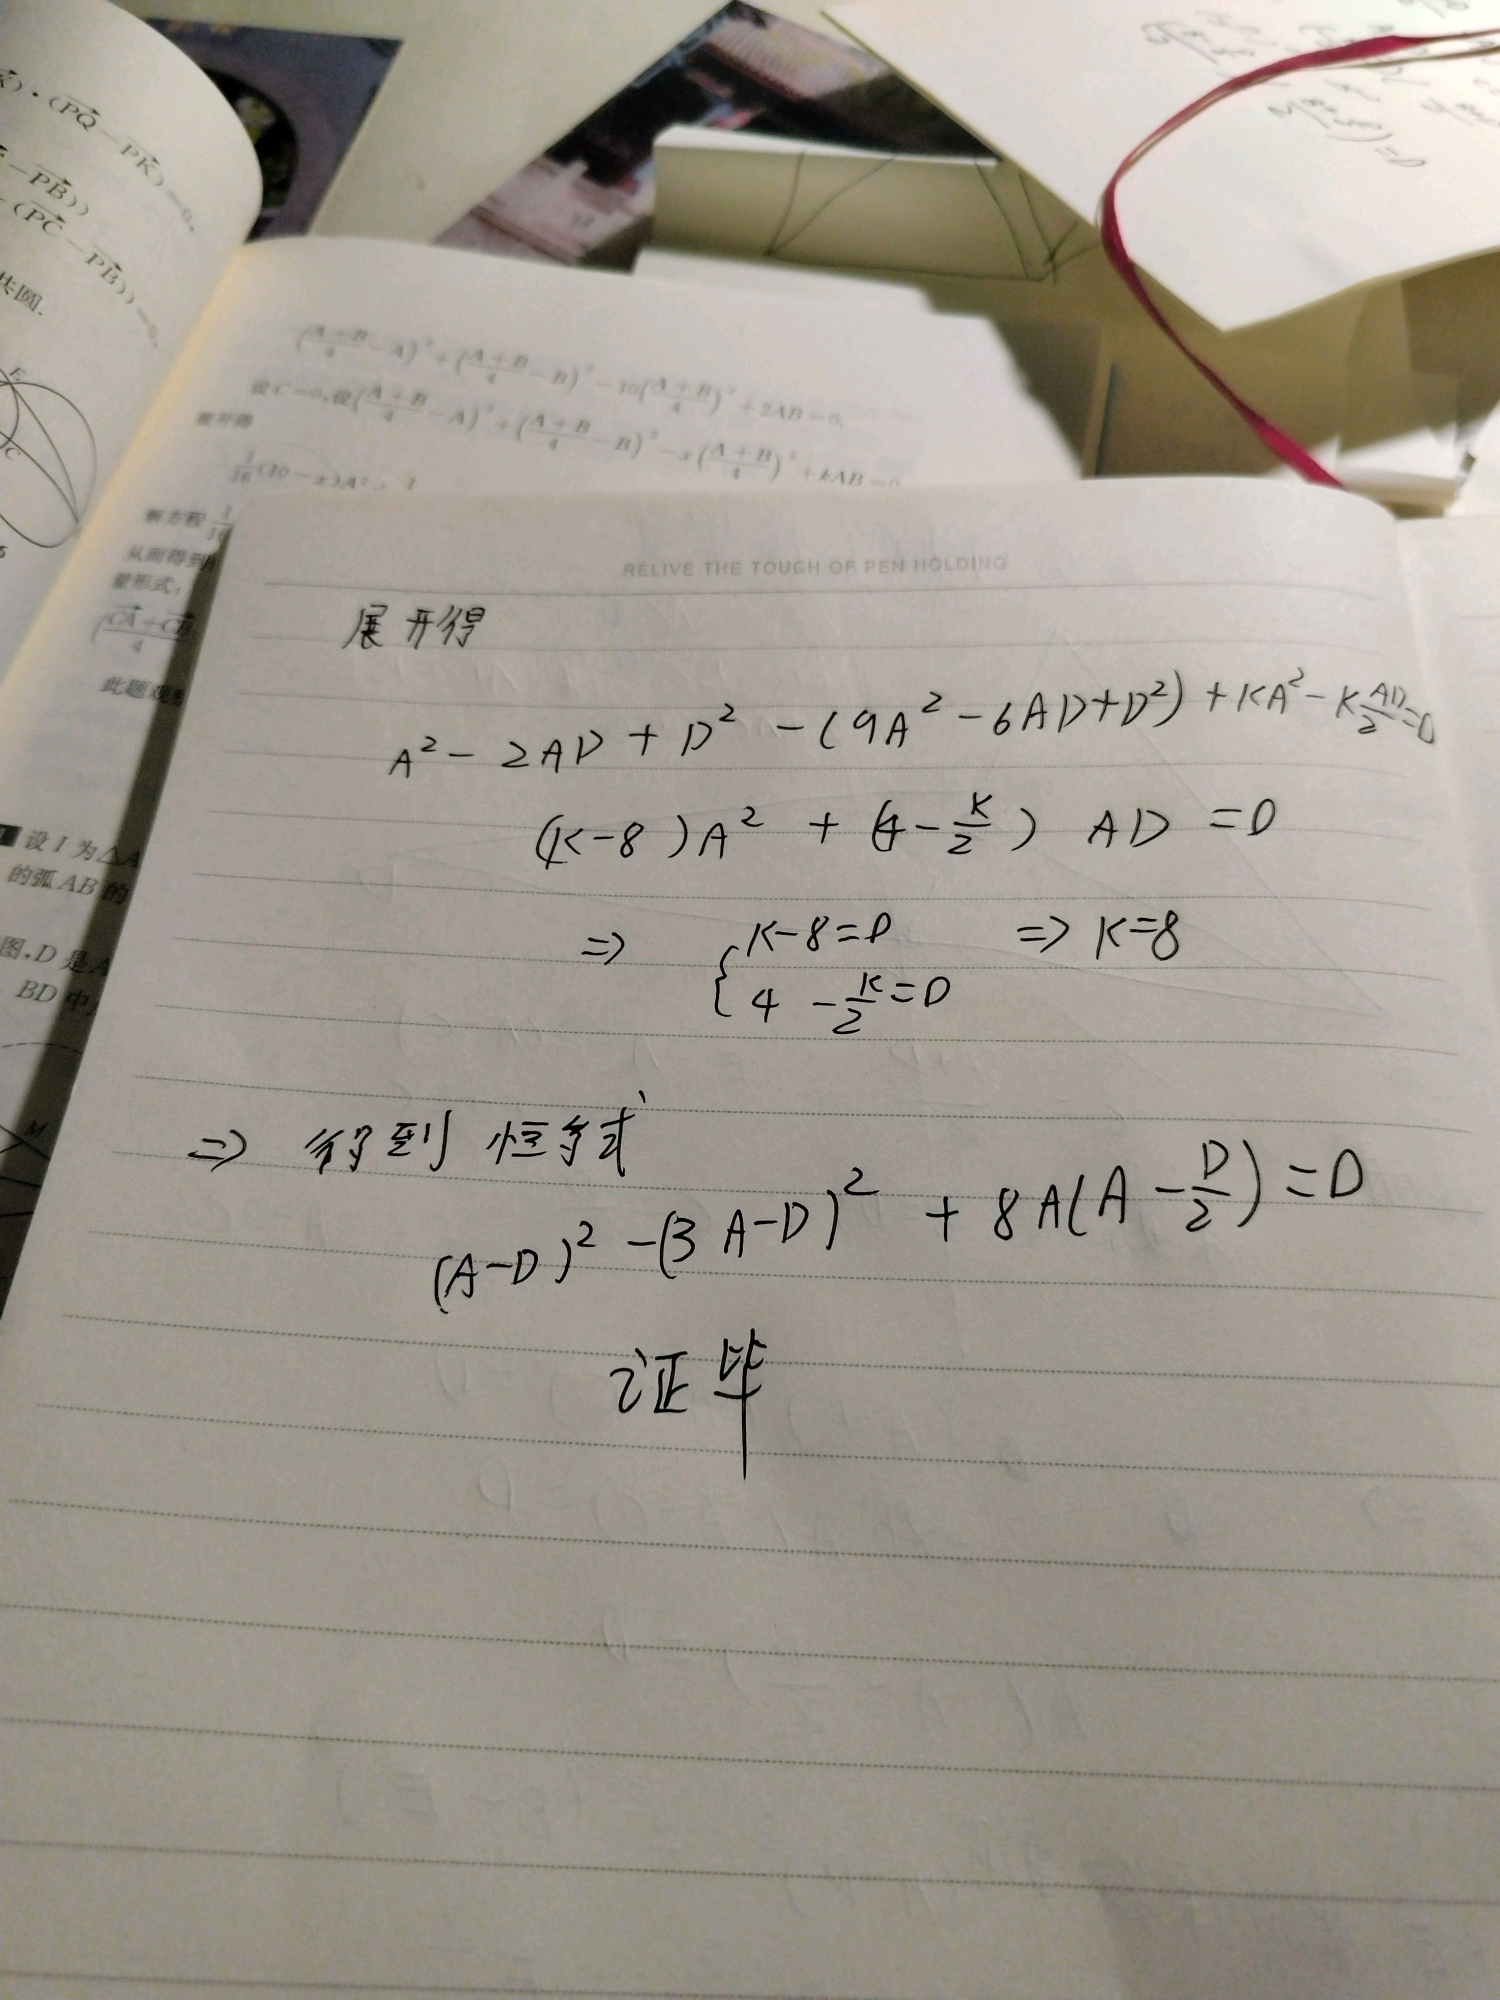 ) · (PQ − PK) = 0,
− PB))
(PC − PB)) = 0,
共圆.
E
C
(A+B/4 − A)² + (A+B/4 − B)² − 10(A+B/4)² + 2AB = 0.
设 C = 0, 设(A+B/4 − A)² + (A+B/4 − B)² − x(A+B/4)² + kAB = 0
展开得
1/16(10 − x)A² +
解方程
从而得到
量形式:
(CA + CB/4
此题观
设 I 为 △A
的弧 AB 的
图, D 是
BD 中,
M
RELIVE THE TOUCH OF PEN HOLDING
展开得
A² − 2AD + D² − (9A² − 6AD + D²) + KA² − K AD/2 = 0
(K − 8)A² + (4 − K/2) AD = 0
⇒ { K − 8 = 0 ⇒ K = 8
4 − K/2 = 0
⇒ 得到 恒等式
(A − D)² − (3A − D)² + 8A(A − D/2) = 0
证毕